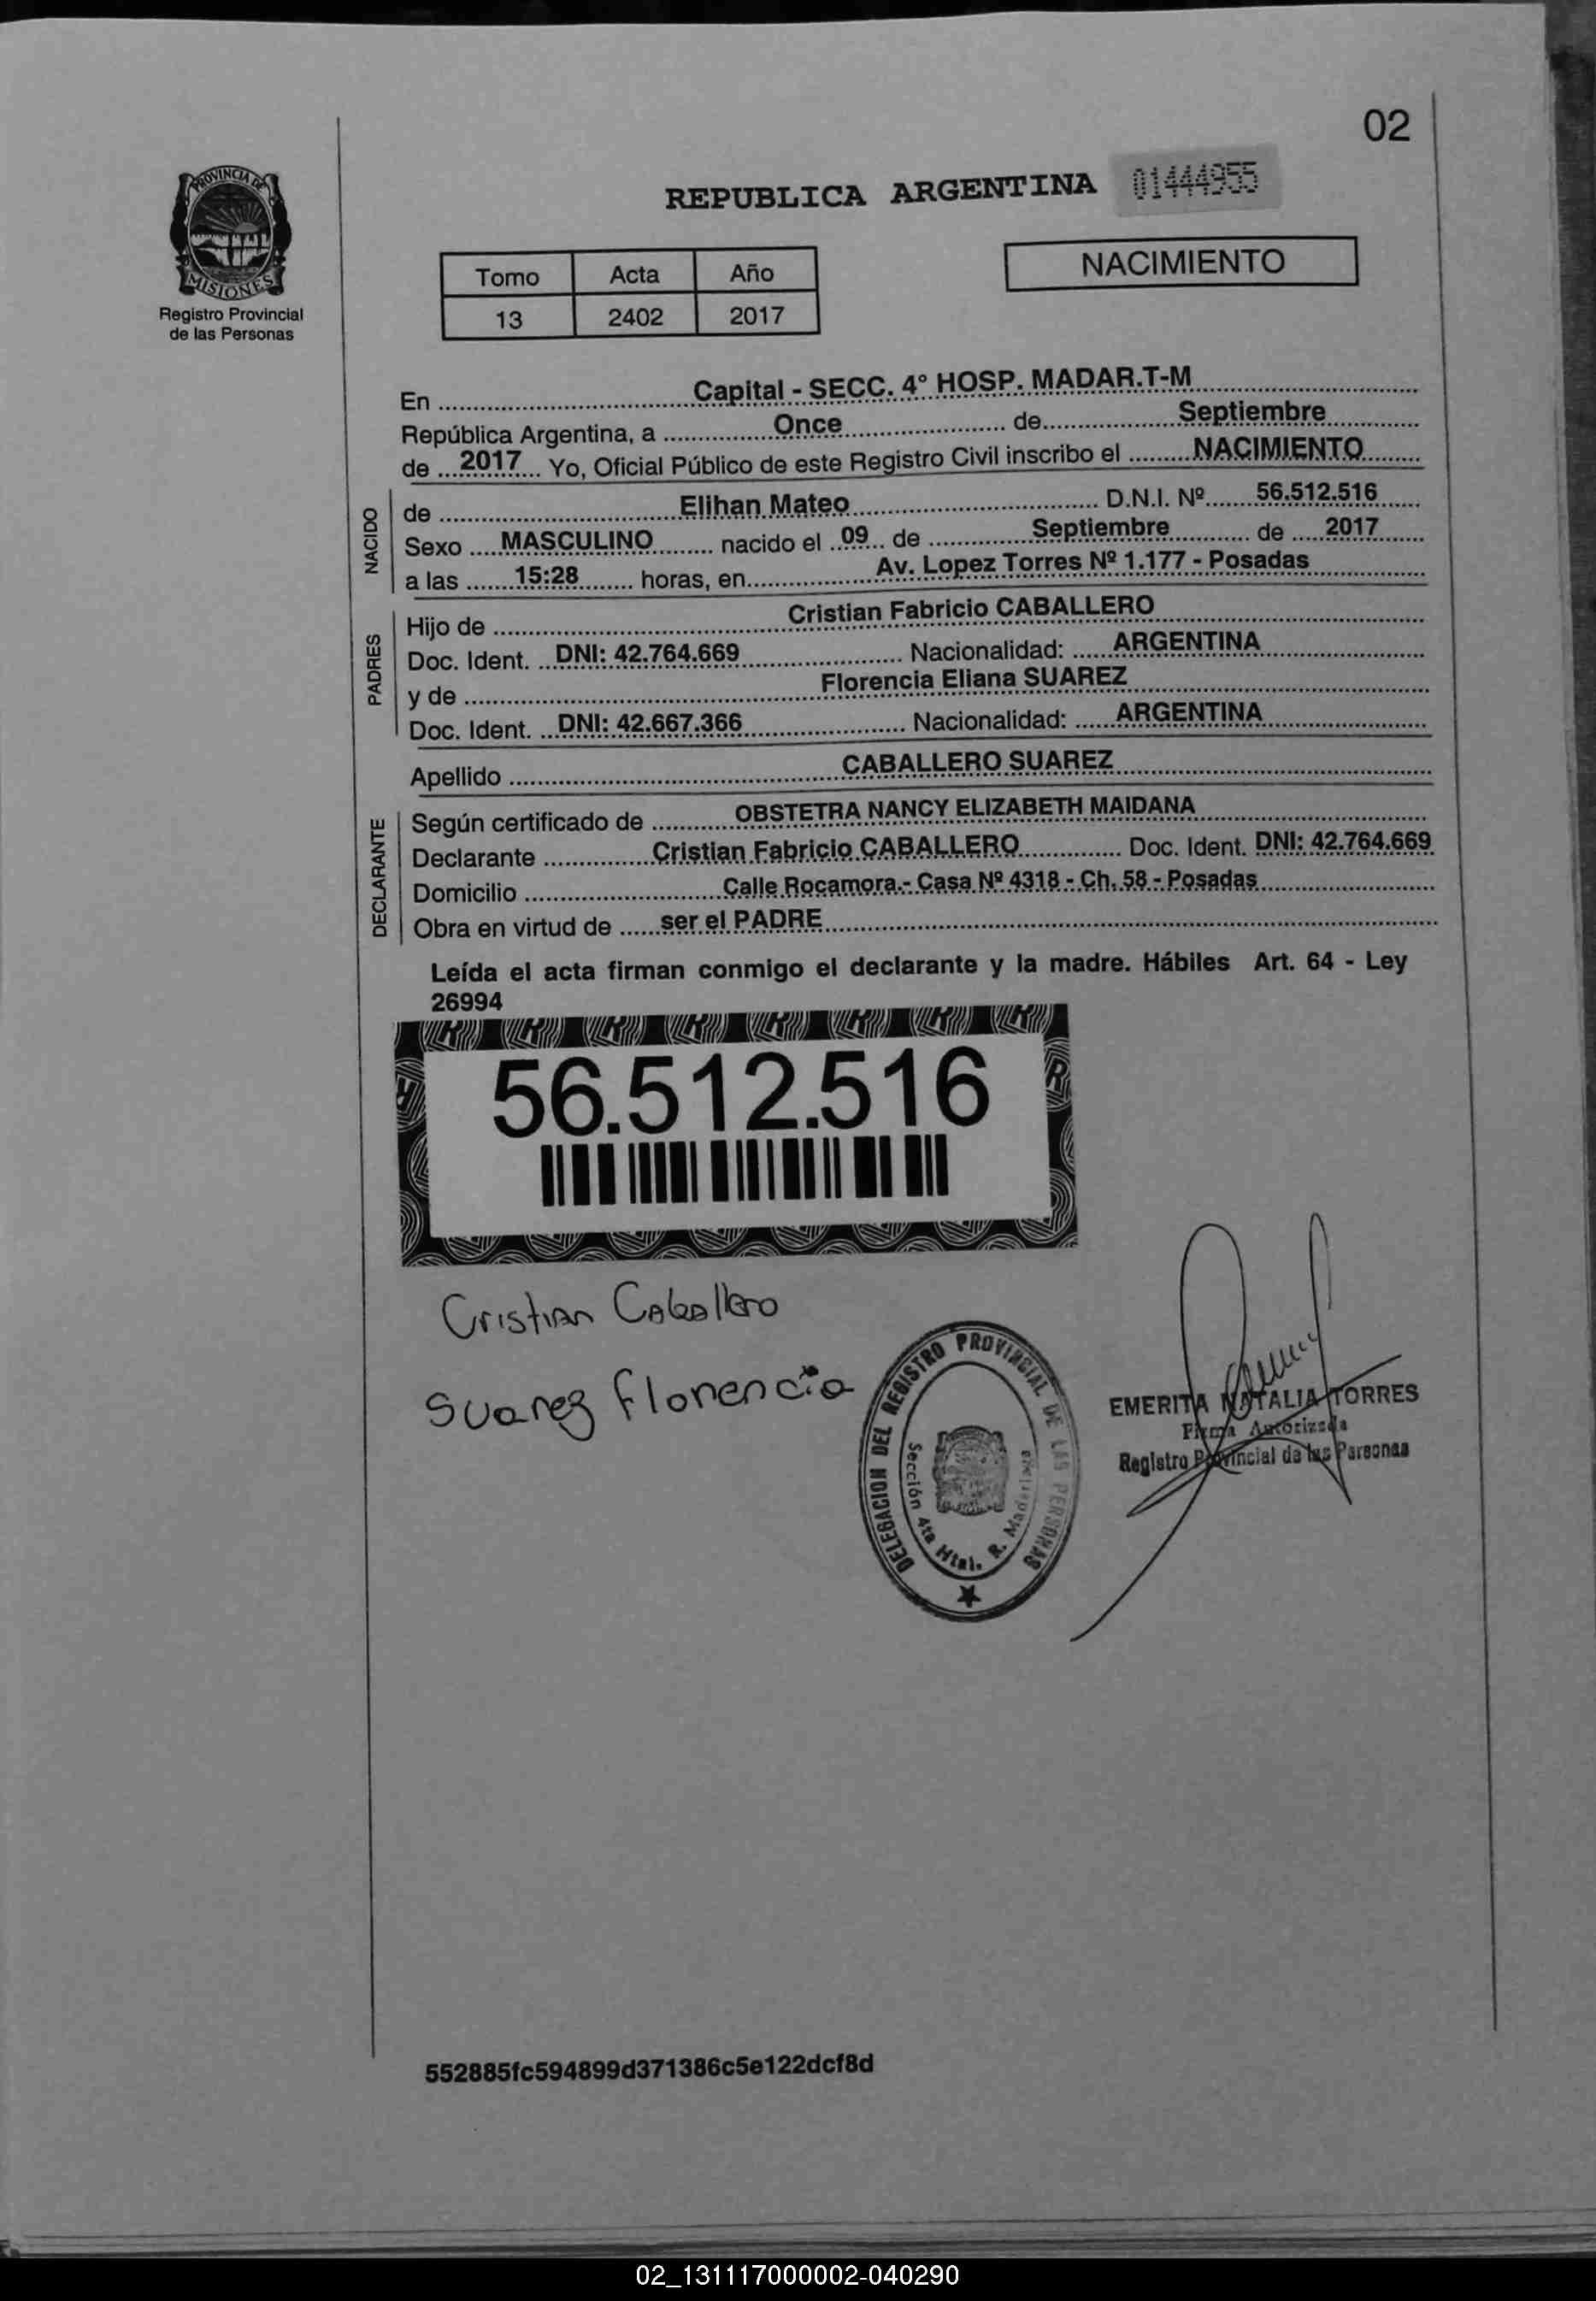 02
PROVINCIA DE
MISIONES
Registro Provincial
de las Personas
REPUBLICA ARGENTINA 01444955
Tomo Acta Año
13 2402 2017
NACIMIENTO
En Capital - SECC. 4° HOSP. MADAR.T-M
República Argentina, a Once de Septiembre
de 2017 Yo, Oficial Público de este Registro Civil inscribo el NACIMIENTO
NACIDO
de Elihan Mateo D.N.I. Nº 56.512.516
Sexo MASCULINO nacido el 09 de Septiembre de 2017
a las 15:28 horas, en Av. Lopez Torres Nº 1.177 - Posadas
PADRES
Hijo de Cristian Fabricio CABALLERO
Doc. Ident. DNI: 42.764.669 Nacionalidad: ARGENTINA
y de Florencia Eliana SUAREZ
Doc. Ident. DNI: 42.667.366 Nacionalidad: ARGENTINA
Apellido CABALLERO SUAREZ
DECLARANTE
Según certificado de OBSTETRA NANCY ELIZABETH MAIDANA
Declarante Cristian Fabricio CABALLERO Doc. Ident. DNI: 42.764.669
Domicilio Calle Rocamora.- Casa Nº 4318 - Ch. 58 - Posadas
Obra en virtud de ser el PADRE
Leída el acta firman conmigo el declarante y la madre. Hábiles Art. 64 - Ley
26994
56.512.516
Cristian Caballero
Suarez Florencia
DELEGACION DEL REGISTRO PROVINCIAL DE LAS PERSONAS
Sección 4ta Htal. R. Madariaga
EMERITA NATALIA TORRES
Firma Autorizada
Registro Provincial de las Personas
552885fc594899d371386c5e122dcf8d
02_131117000002-040290